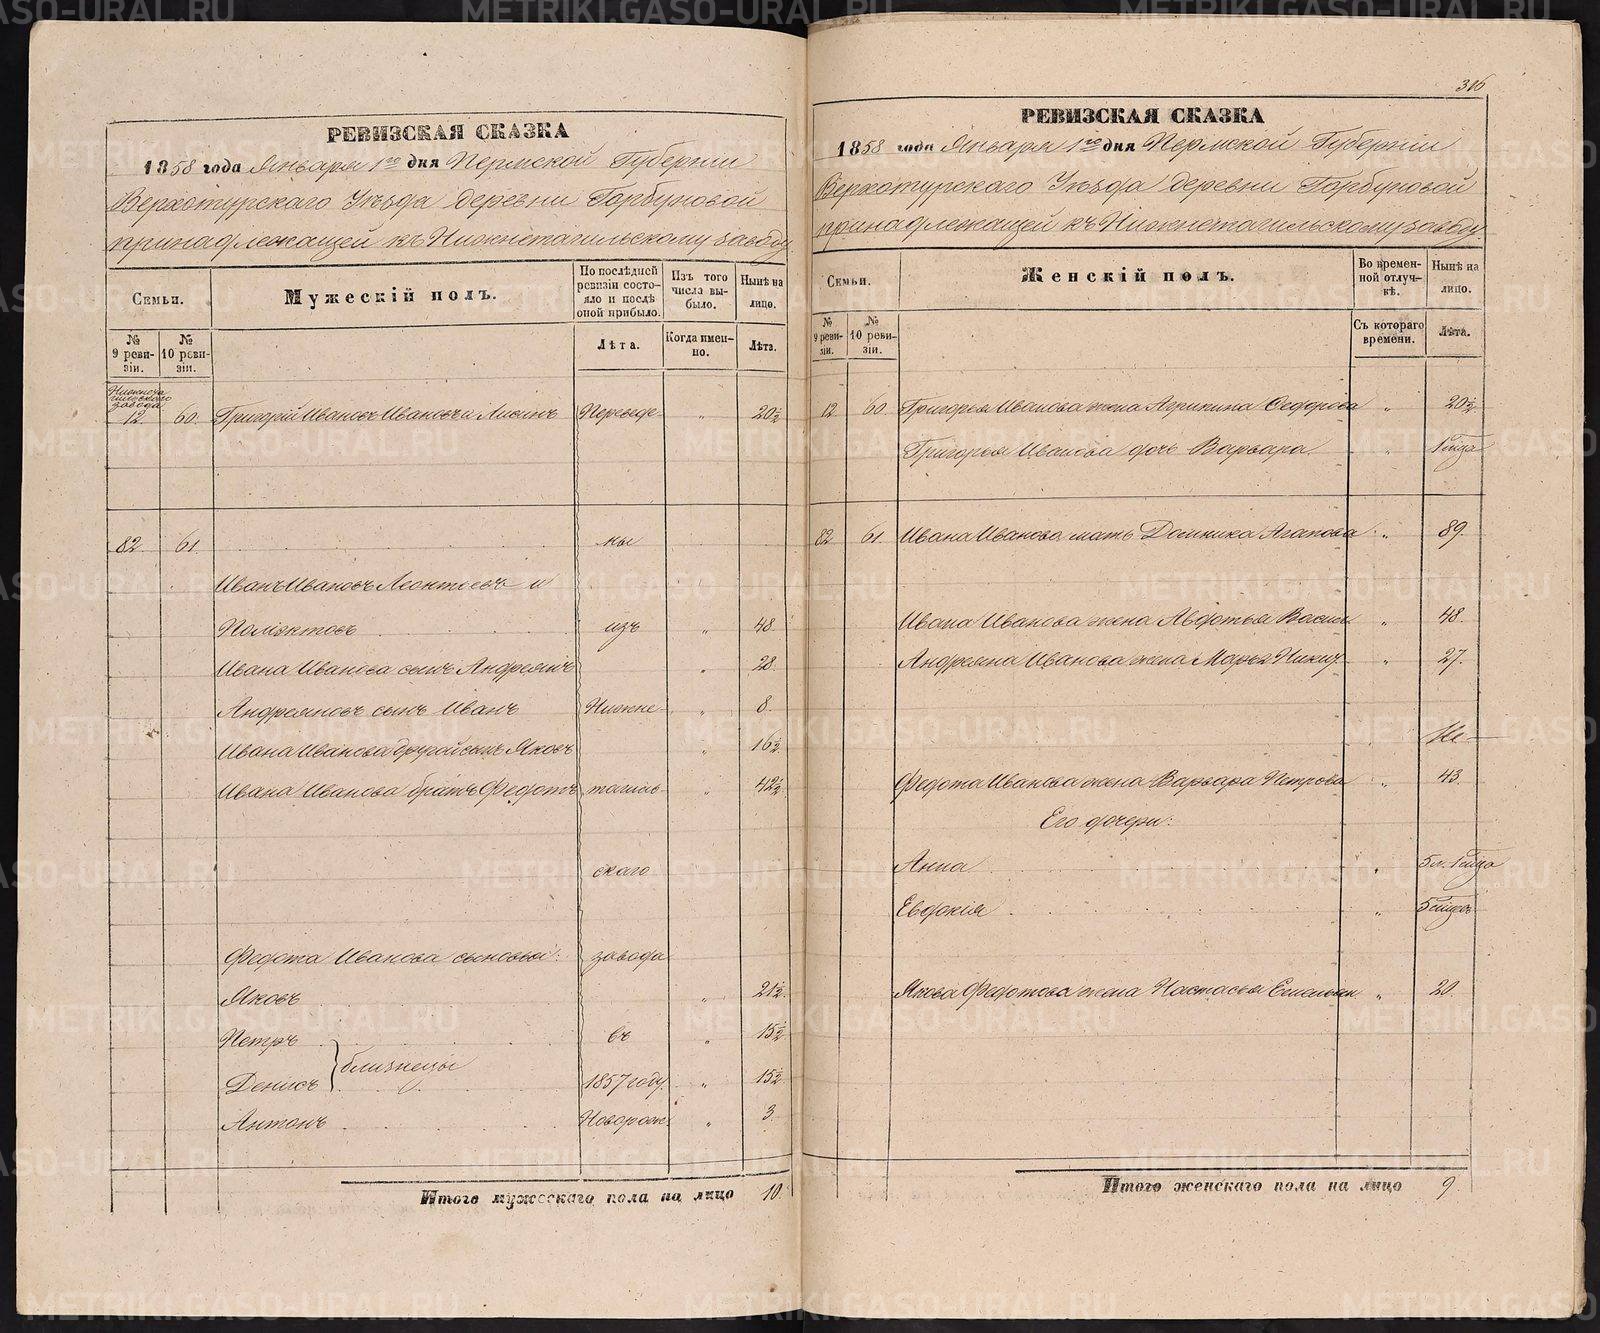 РЕВИЗСКАЯ СКАЗКА
1858 года Января 1го дня Пермской Губерніи
Верхотурскаго Уѣзда деревни Горбуновой
принадлежащей къ Нижнетагильскому заводу
Семьи.
Мужескій полъ.
По послѣдней ревизіи состояло и послѣ оной прибыло.
Изъ того числа выбыло.
Нынѣ на лицо.
№ 9 ревизіи.
№ 10 ревизіи.
Лѣта.
Когда именно.
Лѣта.
Нижнета
гильскаго
завода
12. 60. Григорій Ивановъ Ивановъ и Лисинъ Переведе- „ 20½
82. 61. ны
Иванъ Ивановъ Леонтьевъ и
Поліектовъ изъ „ 48.
Ивана Иванова сынъ Андреянъ „ 28.
Андреяновъ сынъ Иванъ Нижне- „ 8.
Ивана Иванова другой сынъ Яковъ „ 16½
Ивана Иванова братъ Федотъ тагиль- „ 42½
скаго
Федота Иванова сыновья: завода
Яковъ „ 21½
Петръ въ „ 15½
близнецы
Денисъ 1857 году. „ 15½
Антонъ Новорож. „ 3.
Итого мужескаго пола на лицо 10.
316
РЕВИЗСКАЯ СКАЗКА
1858 года Января 1го дня Пермской Губерніи
Верхотурскаго Уѣзда деревни Горбуновой
принадлежащей къ Нижнетагильскому заводу.
Семьи.
Женскій полъ.
Во временной отлучкѣ.
Нынѣ на лицо.
№ 9 ревизіи.
№ 10 ревизіи.
Съ котораго времени.
Лѣта.
12 60 Григорья Иванова жена Агрипина Федорова „ 20½
Григорья Иванова дочь Варвара „ 1 мѣца
82 61 Ивана Иванова мать Домника Агапова „ 89.
Ивана Иванова жена Авдотья Васил „ 48.
Андреяна Иванова жена Марья Никит „ 27.
Федота Иванова жена Варвара Петрова „ 43.
Его дочери:
Анна „ 5 л. 1 мѣца
Евдокія „ 5 мѣцовъ
Якова Федотова жена Настасья Емельян „ 20.
Итого женскаго пола на лицо 9
METRIKI.GASO-URAL.RU